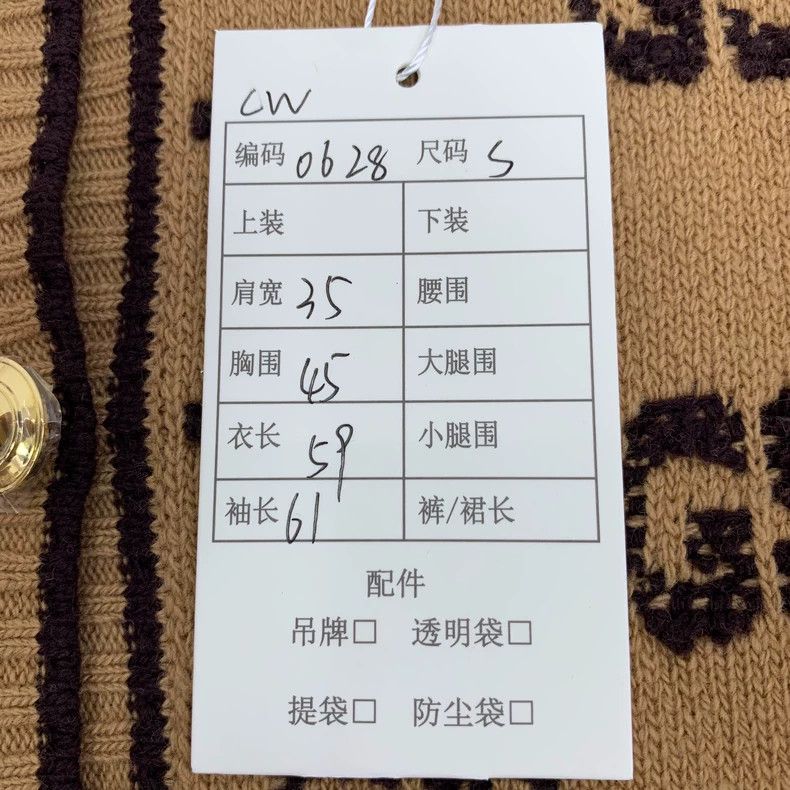 CW
编码 0628 尺码 S
上装 下装
肩宽 35 腰围
胸围 45 大腿围
衣长 59 小腿围
袖长 61 裤/裙长
配件
吊牌□ 透明袋□
提袋□ 防尘袋□